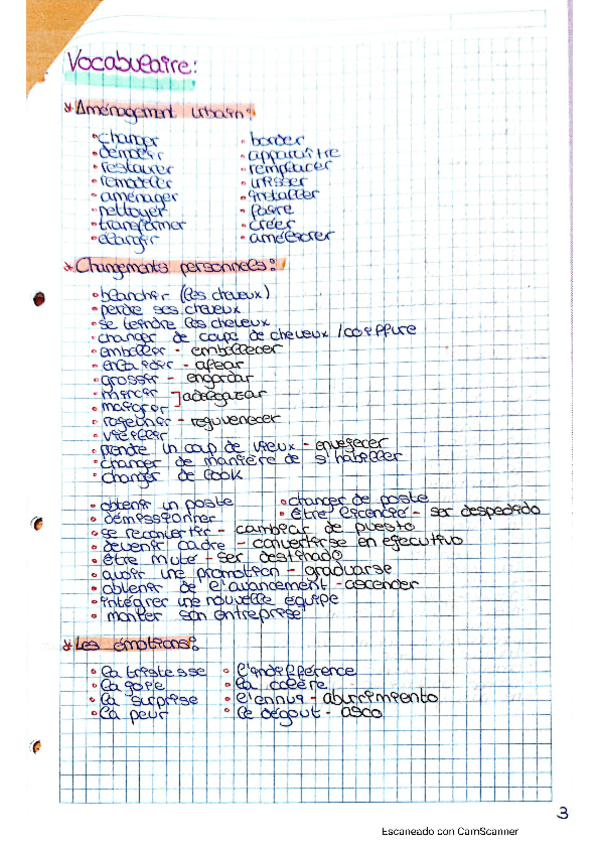 Vocabulaire:
* Aménagement urbain:
• changer
• démolir
• restaurer
• remodeler
• aménager
• nettoyer
• transformer
• élargir
• border
• apparaître
• remplacer
• utiliser
• installer
• faire
• créer
• améliorer
* Changements personnels:
• blanchir (les cheveux)
• perdre ses cheveux
• se teindre les cheveux
• changer de coupe de cheveux / coiffure
• embellir - embellecer
• enlaidir - afear
• grossir - engordar
• mincir
• maigrir ] adelgazar
• rajeunir - rejuvenecer
• vieillir
• prendre un coup de vieux - envejecer
• changer de manière de s'habiller
• changer de look
• obtenir un poste • changer de poste
• démissionner • être licencié - ser despedido
• se reconvertir - cambiar de puesto
• devenir cadre - convertirse en ejecutivo
• être muté - ser destinado
• avoir une promotion - graduarse
• obtenir de l'avancement - ascender
• intégrer une nouvelle équipe
• monter son entreprise
* Les émotions:
• la tristesse • l'indifférence
• la joie • la colère
• la surprise • l'ennui - aburrimiento
• la peur • le dégout - asco
3
Escaneado con CamScanner